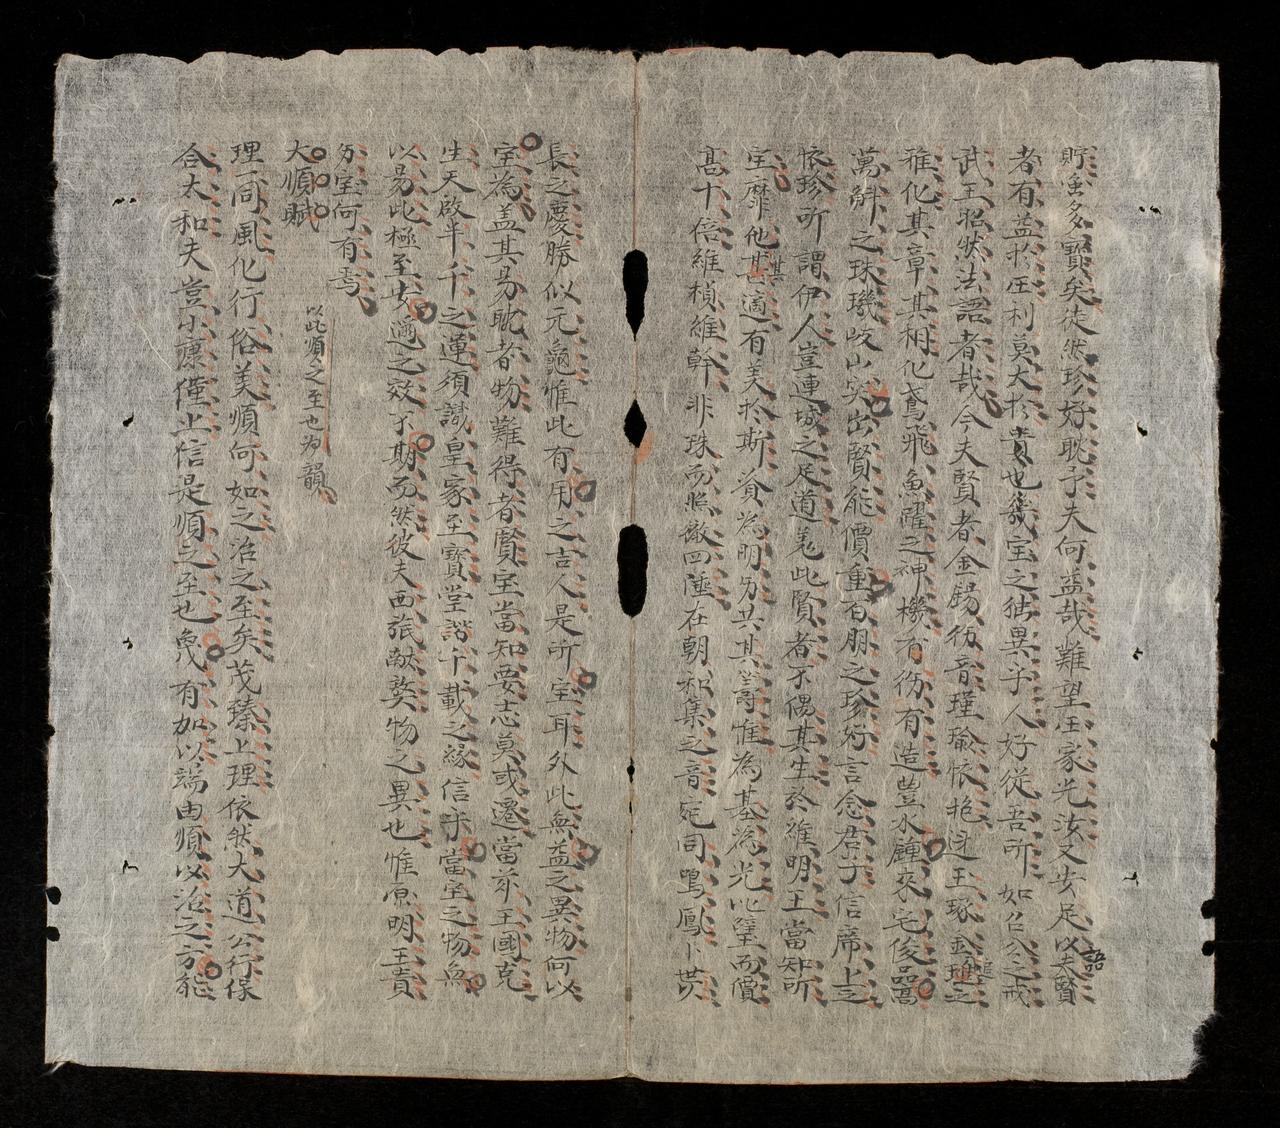 貯虽多寶矣徒然珍好耽予夫何益哉難望王家光汝又安足以語夫賢
者有益於王利莫大於貴也幾宝之猶異予人好從吾所如召公之戒
武王昭然法語者哉今夫賢者金錫彷音瑾瑜依抱追王琢金雅之
雅化其章其相化鳶飛魚躍之神機有彷有造豐水鍾來宅俊畐
萬斛之珠璣岐山突出賢能價重百朋之珍好言念君子信席上之
依珍所謂伊人豈連城之足道羗此賢者不偶其生於維明王當知所
宝靡他其適有美於斯資為明另其其蒭惟為基為光比璧而價
高十倍維楨維幹非珠而照徹四陲在朝和集之音宛同鳴鳳卜世
長之慶勝似元龜惟此有用之吉人是所宝耳外此無益之異物何以
宝為盖其易耽者物難得者賢宝當知要志莫或遷當茲王國克
生天啟半千之運須識皇家至寶堂諧千載之緣信乎當宝之物無
以易此極至安邇之效不期而然彼夫西旅献獒物之異也惟原明王責
另宝何有焉
大順賦
以此順之至也為韻
理同風化行俗美順何如之治之至矣茂臻上理依然大道公行保
合太和夫豈小康僅止信是順之至也㡬有加以端由順以治之方能